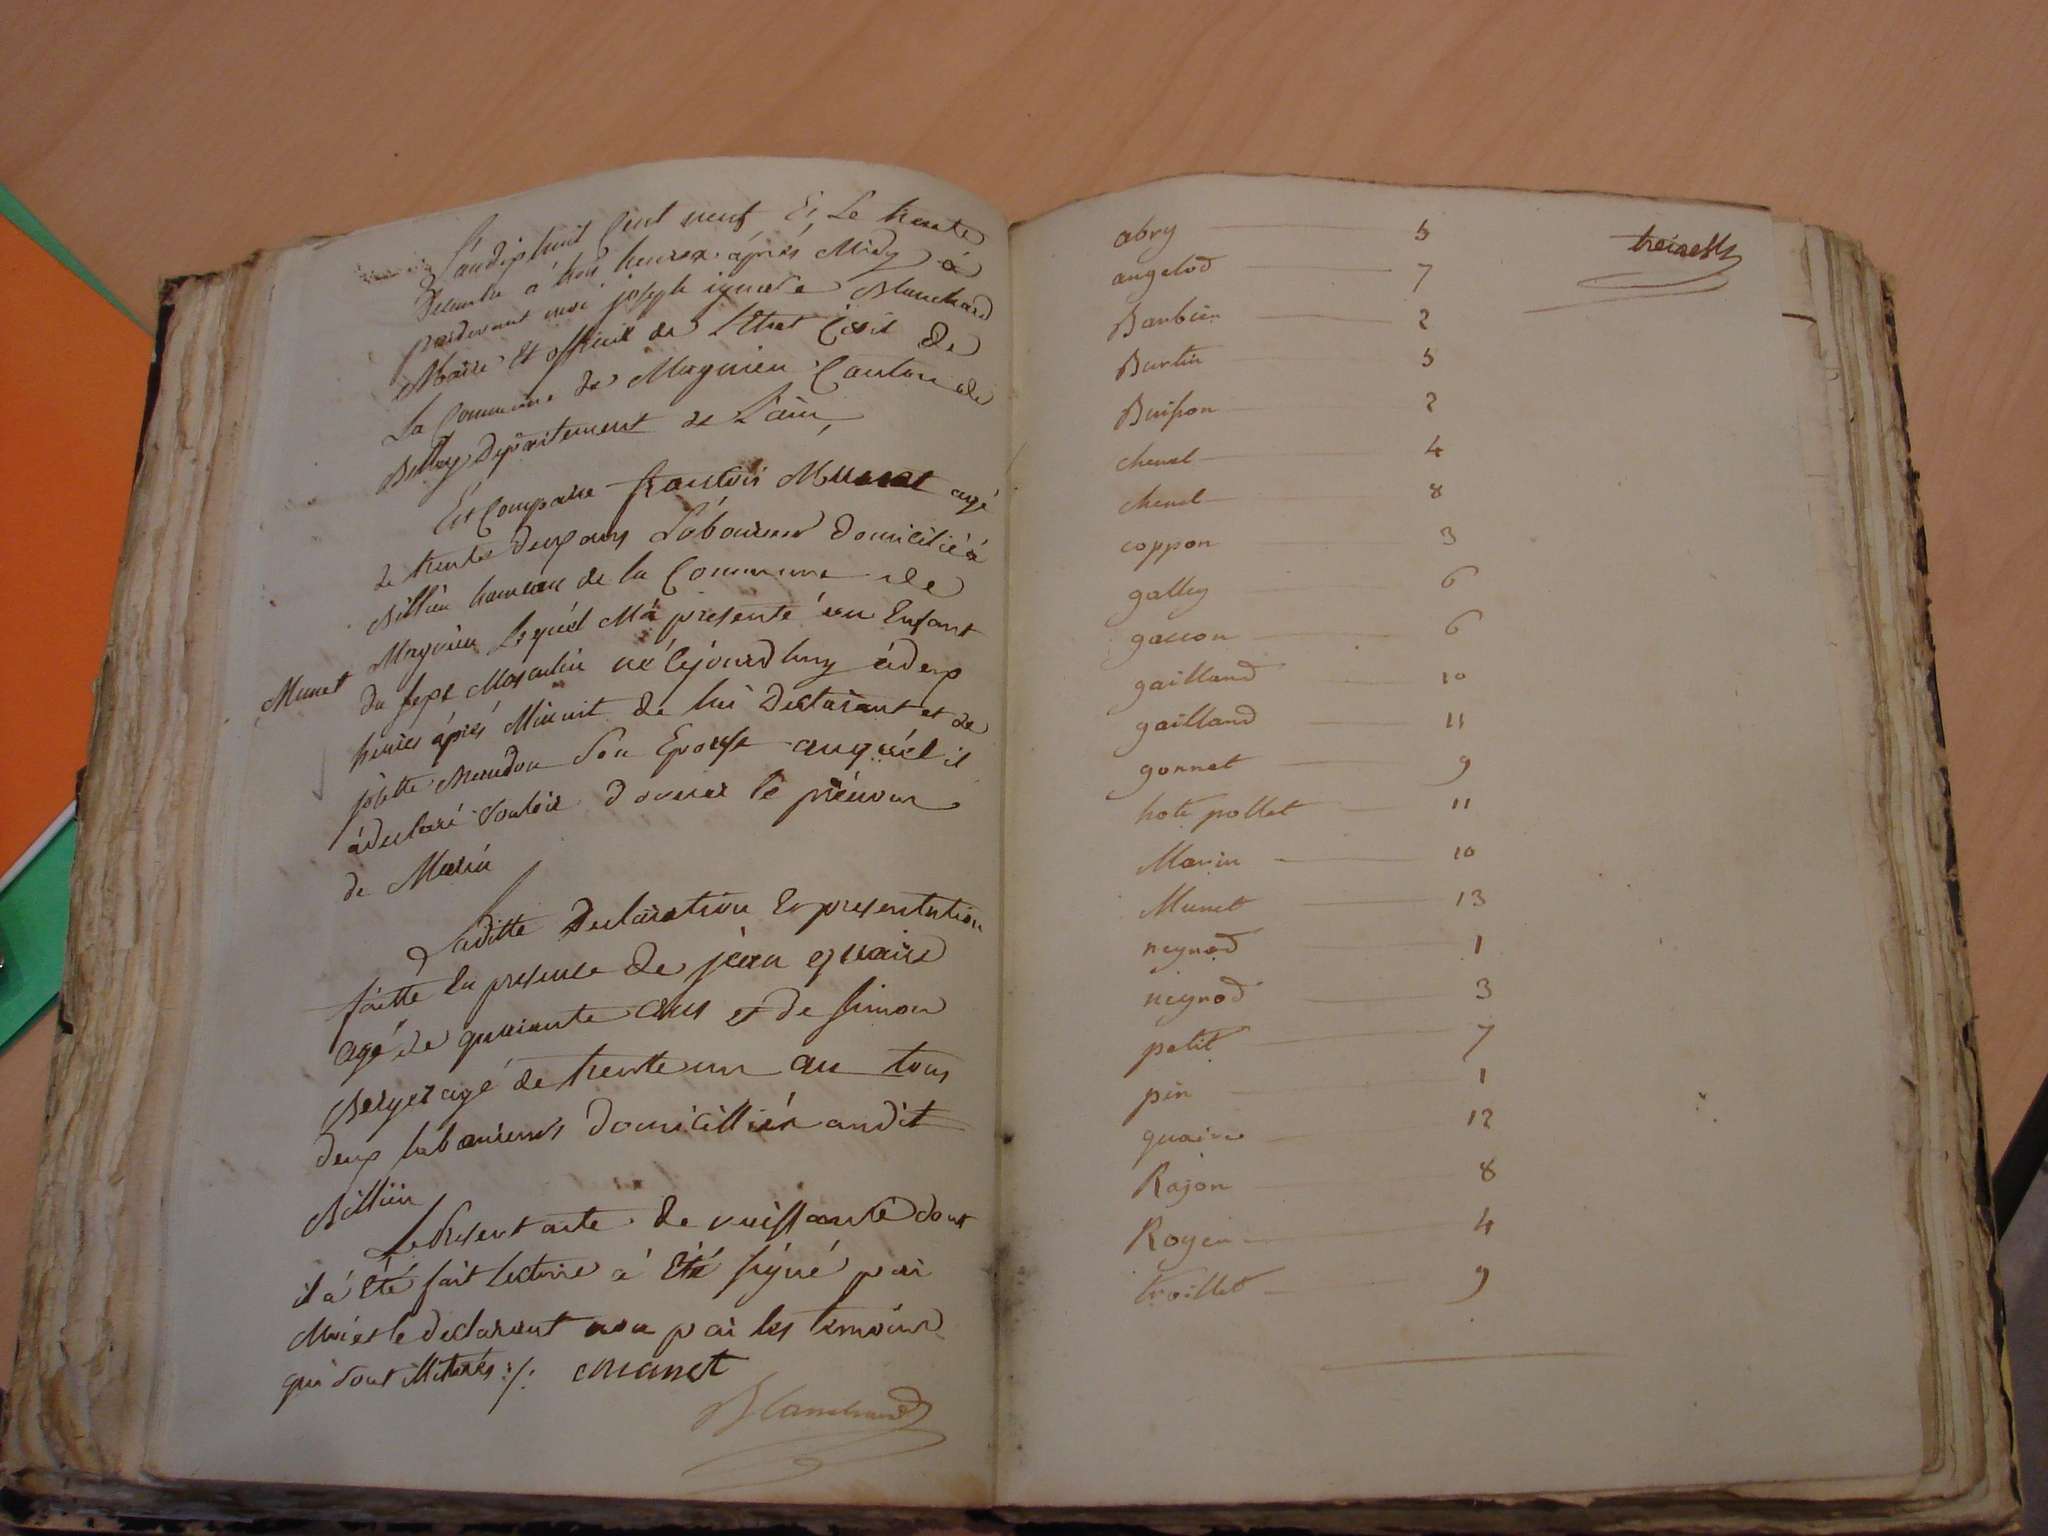 L'an dix huit Cent neuf Et Le trente
Decembre à trois heures après Midy à
pardevant moi joseph ignace Blanchard
Maire Et officier de L'Etat Civil De
La Commune de Magnieu Canton de
Belley Departement de L'ain,
Est Comparu francois Munet agé
de trente deux ans Laboureur Domicilié à
Billieu hameau de la Commune de
Magnieu Lequel M'a presenté un Enfant
Munet
du sexe Masculin né Cejourdhuy à deux
heures après Minuit de lui Declarant et de
josette Son Epouse auquel il
à declaré Vouloir donner le prénom
de Marin
Laditte Declaration Et presentation
faitte En presence de jean quaire
agé de quarante ans et de simon
Berger agé de trente un an tous
deux laboureurs domicilliés audit
Billieu
Le Present acte de naissance dont
il à Eté fait lecture à Eté signé par
Moi et le declarant non par les temoins
qui sont illiterés ./. munet
Blanchard
abry 5
treize
angelod 7
Barbier 2
Burtin 5
Buisson 2
chenel 4
chenel 8
coppon 3
galley 6
gacson 6
gailland 10
gailland 11
gonnet 9
hote pollet 11
Marin 10
Munet 13
neyrod 1
neyrod 3
petit 7
pin 1
quaire 12
Rajon 8
Royer 4
troillet 9